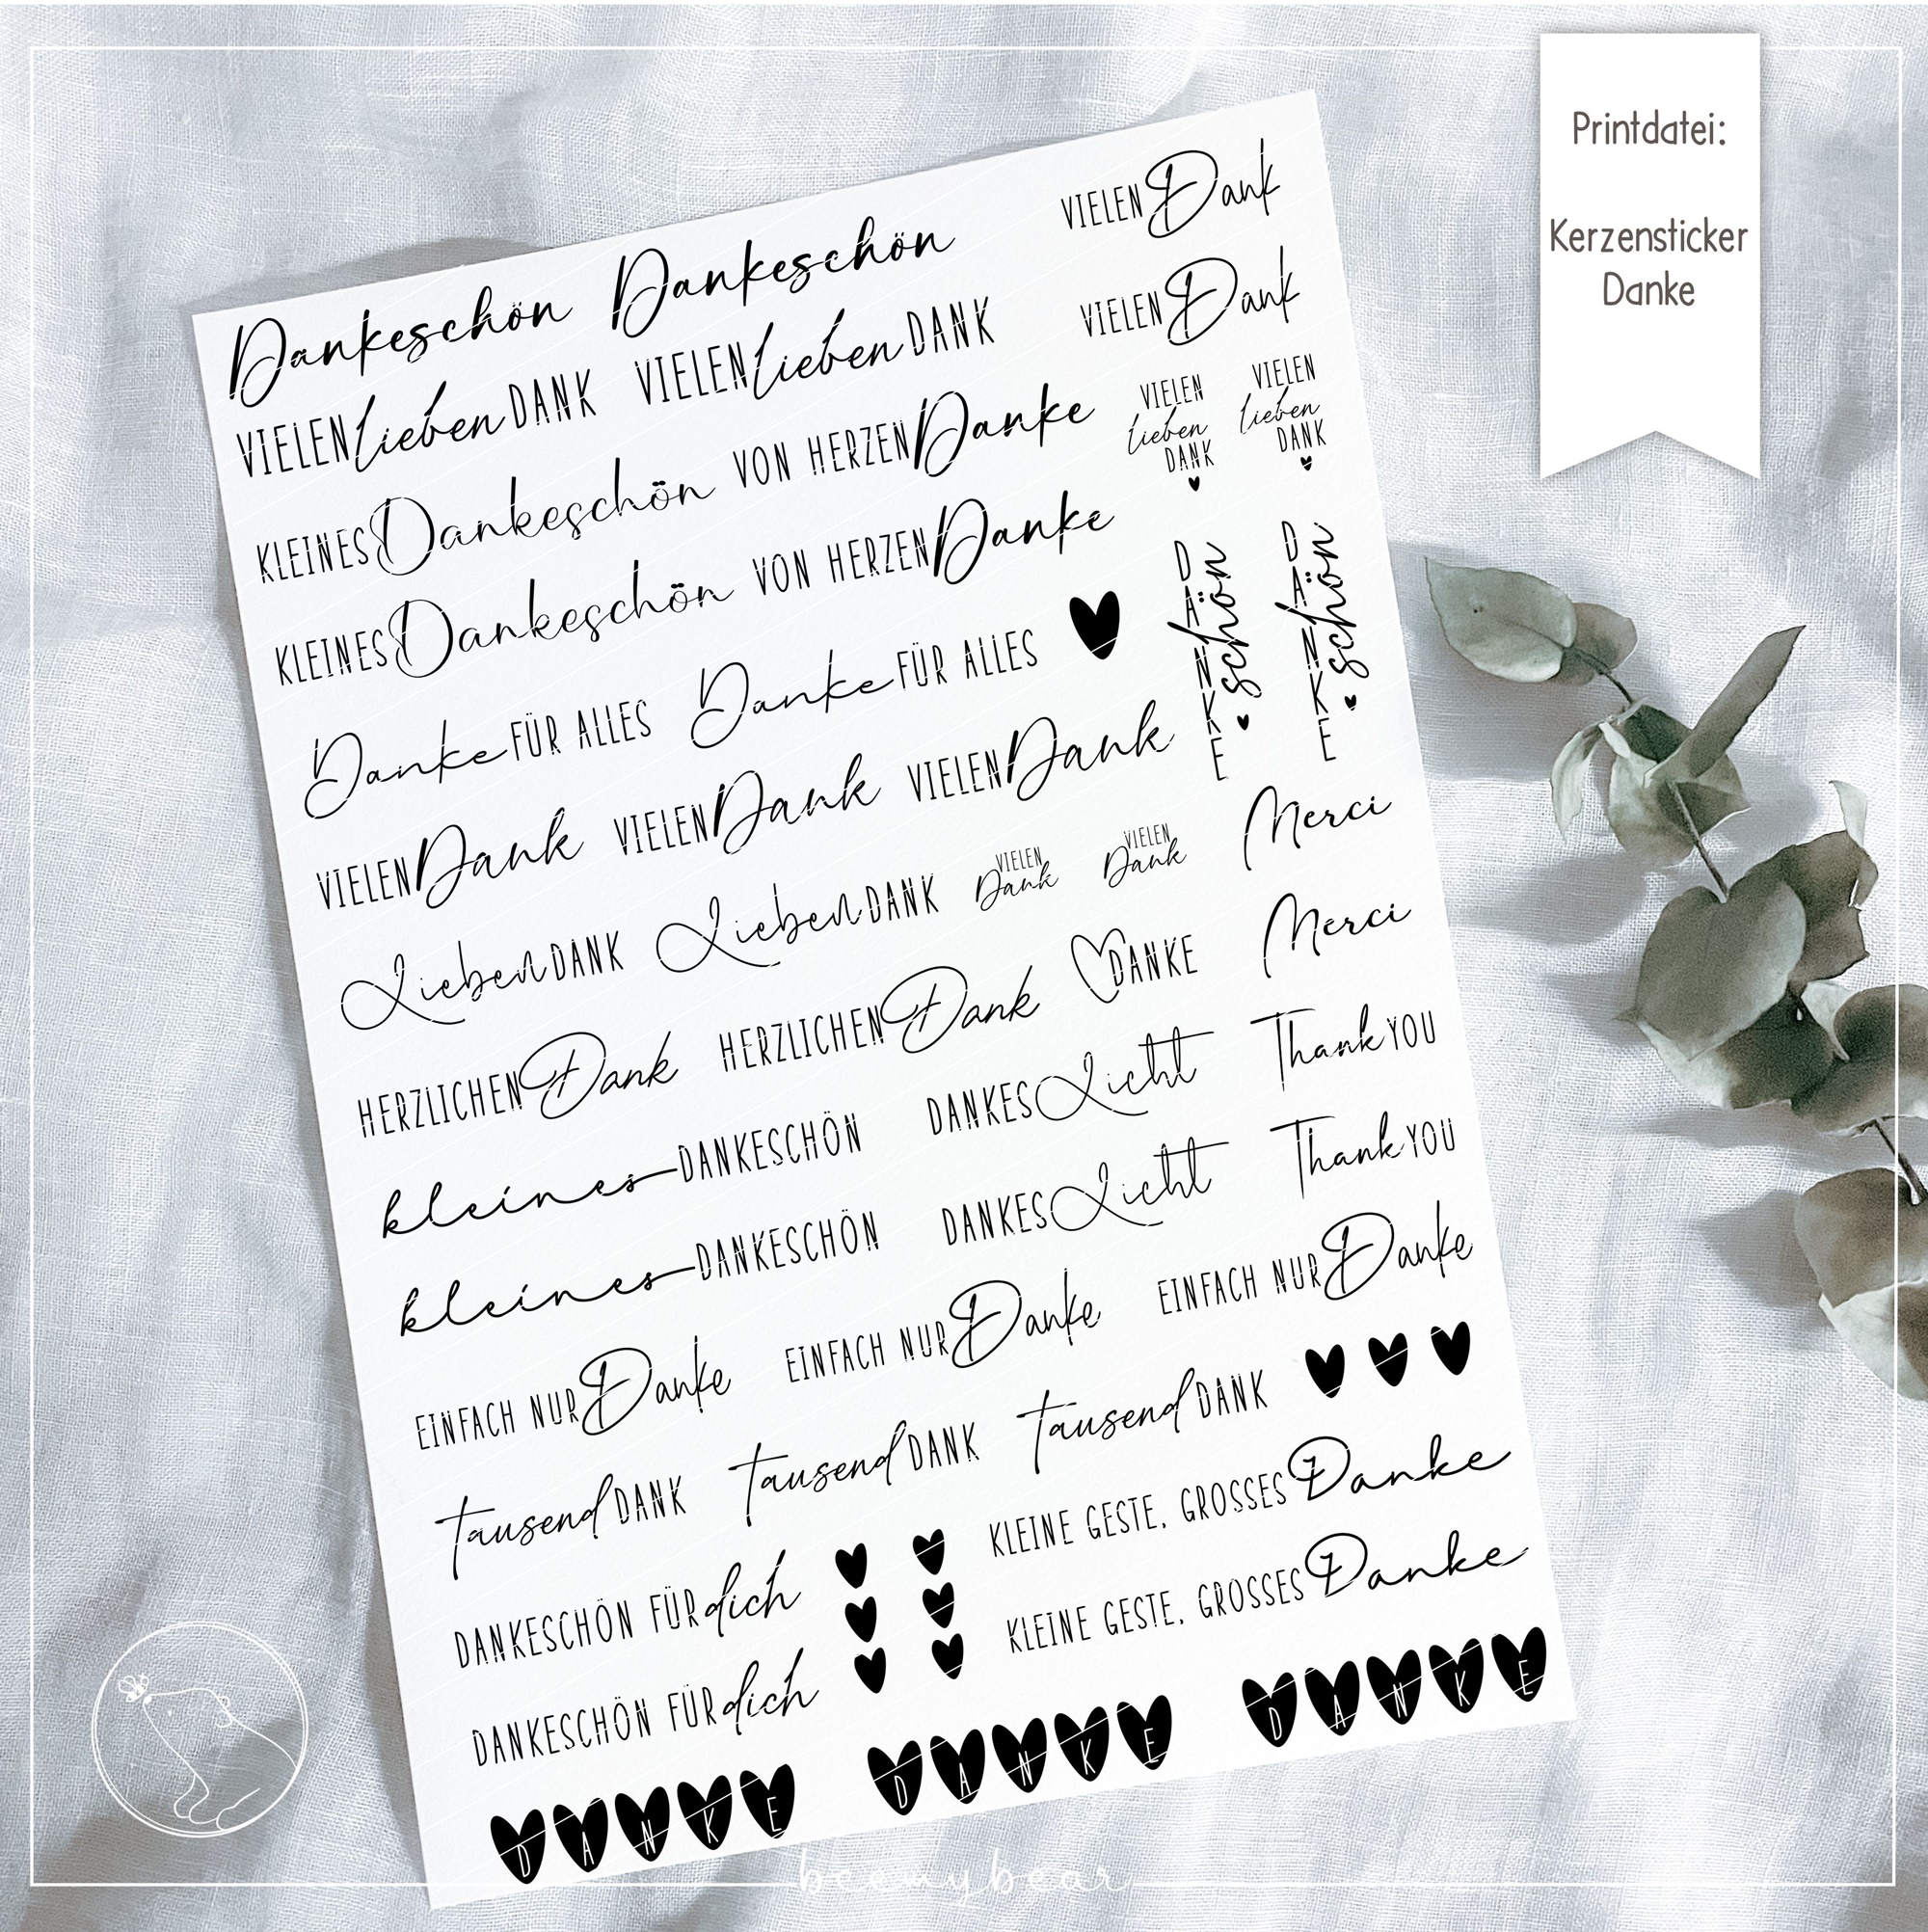 Printdatei:
Kerzensticker
Danke
Dankeschön Dankeschön VIELEN Dank
VIELEN lieben DANK VIELEN lieben DANK VIELEN Dank
KLEINES Dankeschön VON HERZEN Danke
VIELEN
lieben
DANK
VIELEN
lieben
DANK
KLEINES Dankeschön VON HERZEN Danke
DANKE
schön
DANKE
schön
Danke FÜR ALLES Danke FÜR ALLES
VIELEN Dank VIELEN Dank VIELEN Dank
Lieben DANK Lieben DANK
VIELEN
Dank
VIELEN
Dank
Merci
HERZLICHEN Dank HERZLICHEN Dank DANKE Merci
kleines DANKESCHÖN DANKES Licht Thank YOU
kleines DANKESCHÖN DANKES Licht Thank YOU
EINFACH NUR Danke EINFACH NUR Danke EINFACH NUR Danke
Tausend DANK Tausend DANK Tausend DANK
DANKESCHÖN FÜR dich KLEINE GESTE, GROSSES Danke
DANKESCHÖN FÜR dich KLEINE GESTE, GROSSES Danke
DANKE DANKE DANKE
beemybear